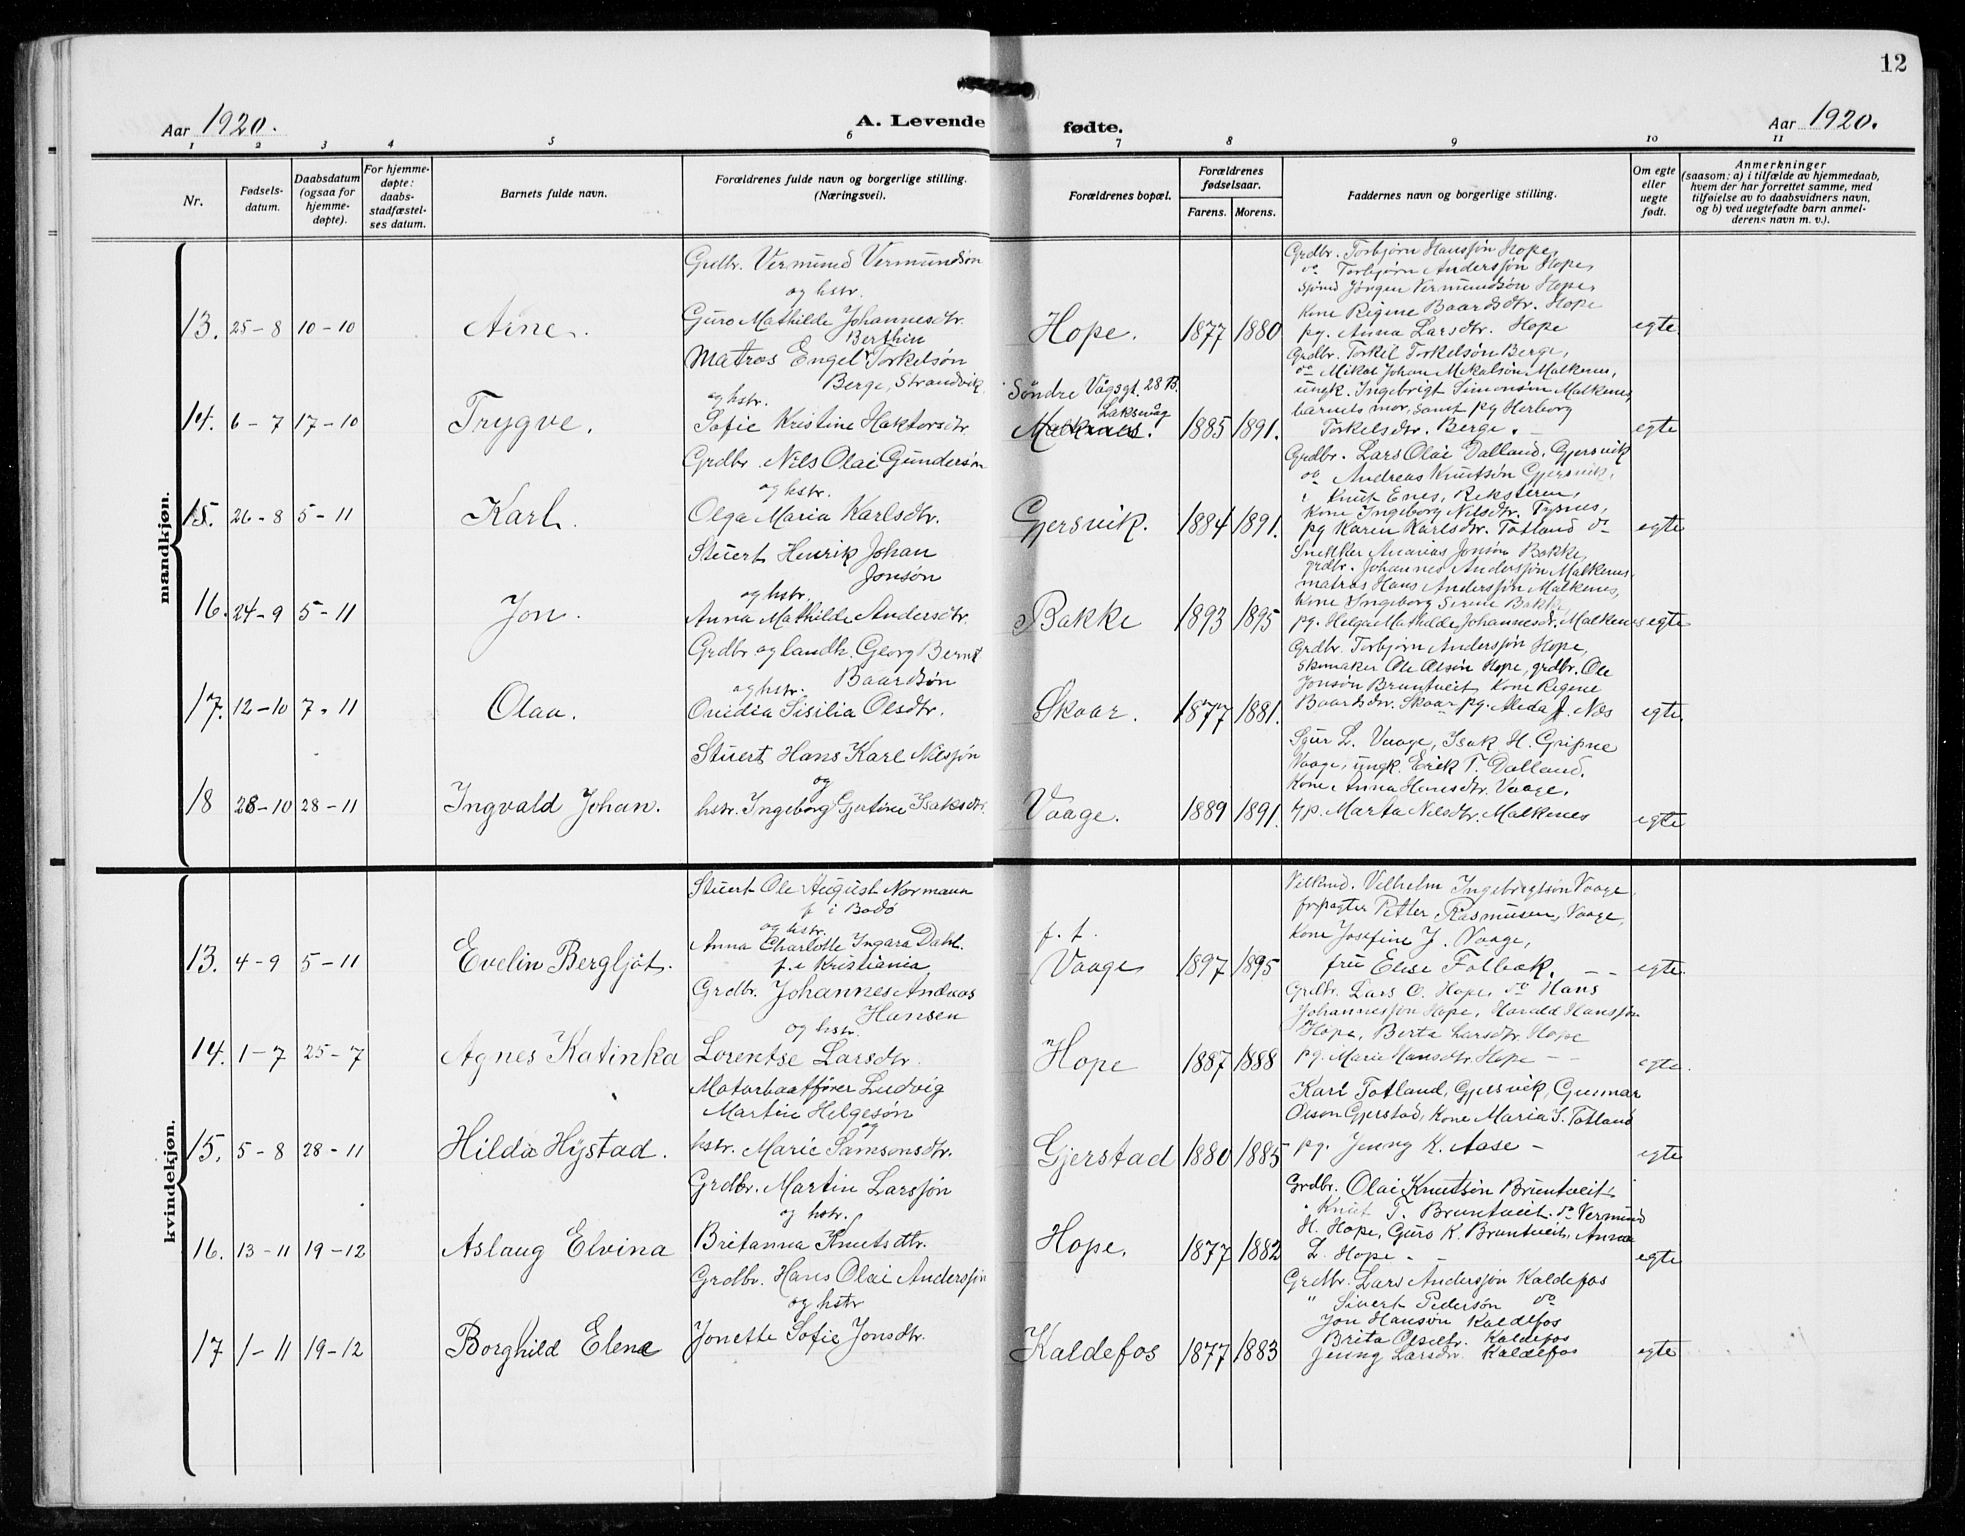 12
Aar 1920.
A. Levende fødte.
Aar 1920.
1 2 3 4 5 6 7 8 9 10 11
Nr.
Fødsels-
datum.
Daabsdatum
(ogsaa for
hjemme-
døpte).
For hjemme-
døpte:
daabs-
stadfæstel-
ses datum.
Barnets fulde navn.
Forældrenes fulde navn og borgerlige stilling.
(Næringsvei).
Forældrenes bopæl.
Forældrenes
fødselsaar.
Farens. Morens.
Faddernes navn og borgerlige stilling.
Om egte
eller
uegte
født.
Anmerkninger
(saasom: a) i tilfælde av hjemmedaab,
hvem der har forrettet samme, med
tilføielse av to daabsvidners navn,
og b) ved uegtefødte barn anmel-
derens navn m. v.).
mandkjøn.
13. 25-8 10-10 Arne.
Grdbr. Vermund Vermundsøn
og hstr.
Guro Mathilde Johannesdtr.
Hope. 1877 1880
Grdbr. Torbjørn Hanssøn Hope,
do Torbjørn Anderssøn Hope,
Jørgen Vermundsøn Hope,
Kone Regine Baardsdtr. Hope
pg. Anna Larsdtr. Hope
egte
14. 6-7 17-10 Trygve.
Berthin
Matros Engel Torkelsøn
Berge, Strandvik
og hstr.
Sofie Kristine Haktorsdtr
Søndre Vågsgt. 28 B.
Laksevåg
Malkenes. 1885 1891.
Grdbr. Torkil Torkelsøn Berge,
do Mikal Johan Mikalsøn Malkenes,
ungk. Ingebrigt Simonsøn Malkenes,
barnets mor, samt pg Herborg
Torkelsdtr. Berge. -
egte
15. 26-8 5-11 Karl.
Grdbr. Nils Olai Gundersøn
og hstr.
Olga Maria Karlsdtr.
Gjersvik. 1884 1891.
Grdbr. Lars Olai Dalland, Gjersvik
do Andreas Knutsøn Gjersvik,
Knut Enes, Reksteren,
Kone Ingeborg Nilsdtr. Tysnes,
pg Karen Karlsdtr. Totland do
egte
16. 24-9 5-11 Jon.
Stuert Henrik Johan
Jonsøn
og hstr.
Anna Mathilde Andersdtr.
Bakke 1893 1895
Snekker Ananias Jonsøn Bakke,
grdbr. Johannes Anderssøn Malkenes,
matros Hans Anderssøn Malkenes,
Kone Ingeborg Serine Bakke,
pg. Helga Mathilde Johannesdr. Malkenes
egte
17. 12-10 7-11 Olav.
Grdbr og landh. Georg Bernt
Baardsøn
og hstr.
Ovidia Sisilia Olsdtr.
Skaar. 1877 1881.
Grdbr. Torbjørn Anderssøn Hope,
skomaker Ole Olsøn Hope, grdbr. Ole
Jonsøn Bruntveit, Kone Regine
Baardsdtr. Skaar pg. Alida J. Næs
egte.
18 28-10 28-11 Ingvald Johan.
Stuert Hans Karl Nilssøn
og
hstr. Ingeborg Gjertine Isaksdtr.
Vaage. 1889 1891.
Sjur L. Vaage, Isak H. Gripne
Vaage, ungk. Erik T. Dalland.
Kone Anna Vaage,
pg. Marta Nilsdtr. Malkenes
egte
kvindekjøn.
13. 4-9 5-11 Evelin Bergljot.
Stuert Ole August Normann
f. i Bodø
og hstr.
Anna Charlotte Ingara Dahl.
f. i Kristiania
f. t.
Vaage 1897 1895
Vilhelm Ingebrigtsøn Vaage.
forpagter Petter Rasmusen, Vaage,
Kone Josefine J. Vaage,
fru Elise Folbak. - -
egte.
14. 1-7 25-7 Agnes Katinka
Grdbr. Johannes Andeas
Hansen
og hstr.
Lorentse Larsdtr.
Hope 1887 1888
Grdbr. Lars O. Hope, do Hans
Johannessøn Hope, Harald Hanssøn
Hope, Berta Larsdtr Hope
pg. Marie Hansdtr. Hope - -
egte.
15. 5-8 28-11 Hilda Hystad.
Motorbaatfører Ludvig
Martin Helgesøn
og
hstr. Marie Samsonsdtr.
Gjerstad 1880 1885
Karl Totland, Gjersvik, Gunnar
Olson Gjerstad, Kone Maria S. Totland
pg. Jenny K. Aase -
egte
16. 13-11 19-12 Aslaug Elvina
Grdbr. Martin Larssøn
og hstr.
Britanna Knutsdtr.
Hope. 1877 1882
Grdbr. Olai Knutsøn Bruntveit
" Knut T. Bruntveit. do Vermund
H. Hope, Guro K. Bruntveit, Anna
L. Hope - -
egte
17 1-11 19-12 Borghild Elene
Grdbr. Hans Olai Anderssøn
og hstr
Jonette Sofie Jonsdtr.
Kaldefos 1877 1883
Grdbr. Lars Anderssøn Kaldefos
" Sivert Pedersøn do
Jon Hansøn Kaldefos
Brita Olsdtr. Kaldefos
Jenny Larsdtr. Kaldefos
egte